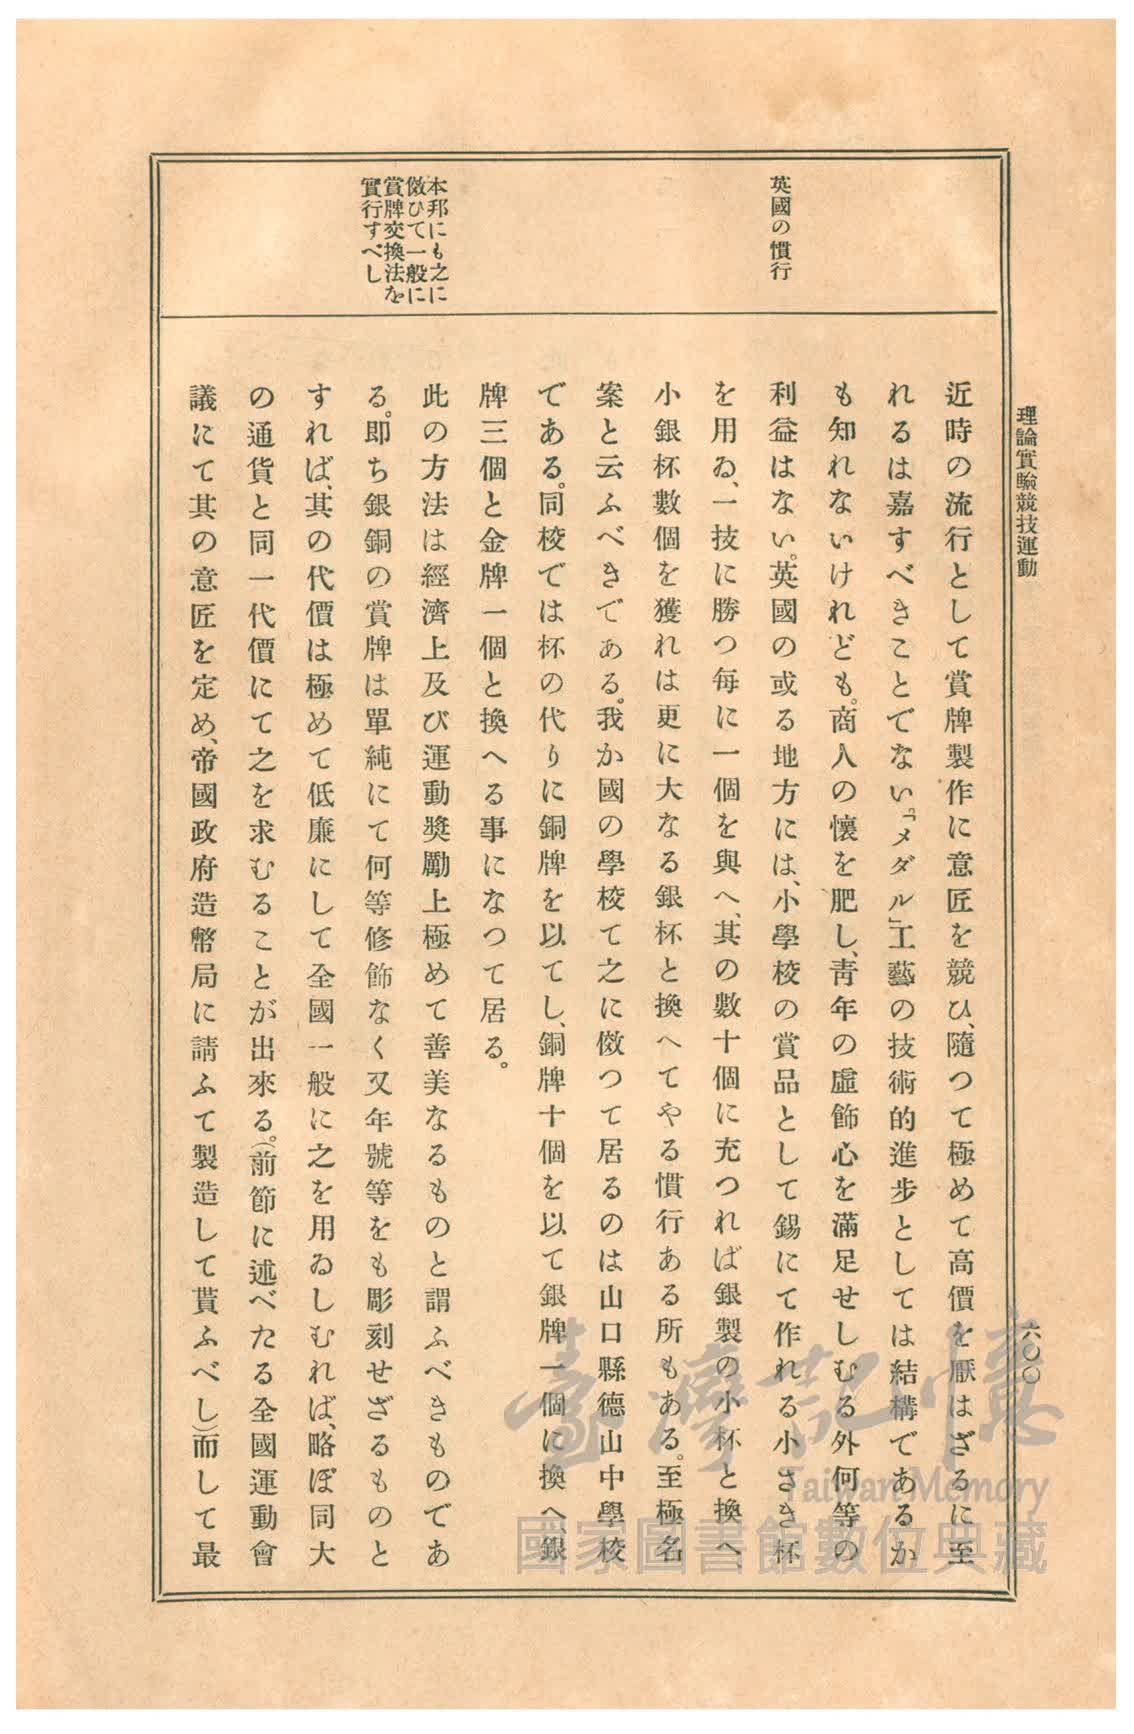 理論實驗競技運動
六〇〇
英國の慣行
本邦にも之に
倣ひて一般に
賞牌交換法を
實行すべし
近時の流行として賞牌製作に意匠を競ひ、隨つて極めて高價を厭はざるに至
れるは嘉すべきことでない。「メダル」工藝の技術的進步としては結構であるか
も知れないけれども。商人の懷を肥し、靑年の虛飾心を滿足せしむる外何等の
利益はない。英國の或る地方には、小學校の賞品として錫にて作れる小さき杯
を用ゐ、一技に勝つ每に一個を與へ、其の數十個に充つれば銀製の小杯と換へ、
小銀杯數個を獲れは更に大なる銀杯と換へてやる慣行ある所もある。至極名
案と云ふべきである。我か國の學校て之に倣つて居るのは山口縣德山中學校
である。同校では杯の代りに銅牌を以てし、銅牌十個を以て銀牌一個に換へ、銀
牌三個と金牌一個と換へる事になつて居る。
此の方法は經濟上及び運動奬勵上極めて善美なるものと謂ふべきものであ
る。卽ち銀銅の賞牌は單純にて何等修飾なく又年號等をも彫刻せざるものと
すれば、其の代價は極めて低廉にして全國一般に之を用ゐしむれば、略ぼ同大
の通貨と同一代價にて之を求むることが出來る。(前節に述べたる全國運動會
議にて其の意匠を定め、帝國政府造幣局に請ふて製造して貰ふべし)而して最
臺灣記憶
Taiwan Memory
國家圖書館數位典藏